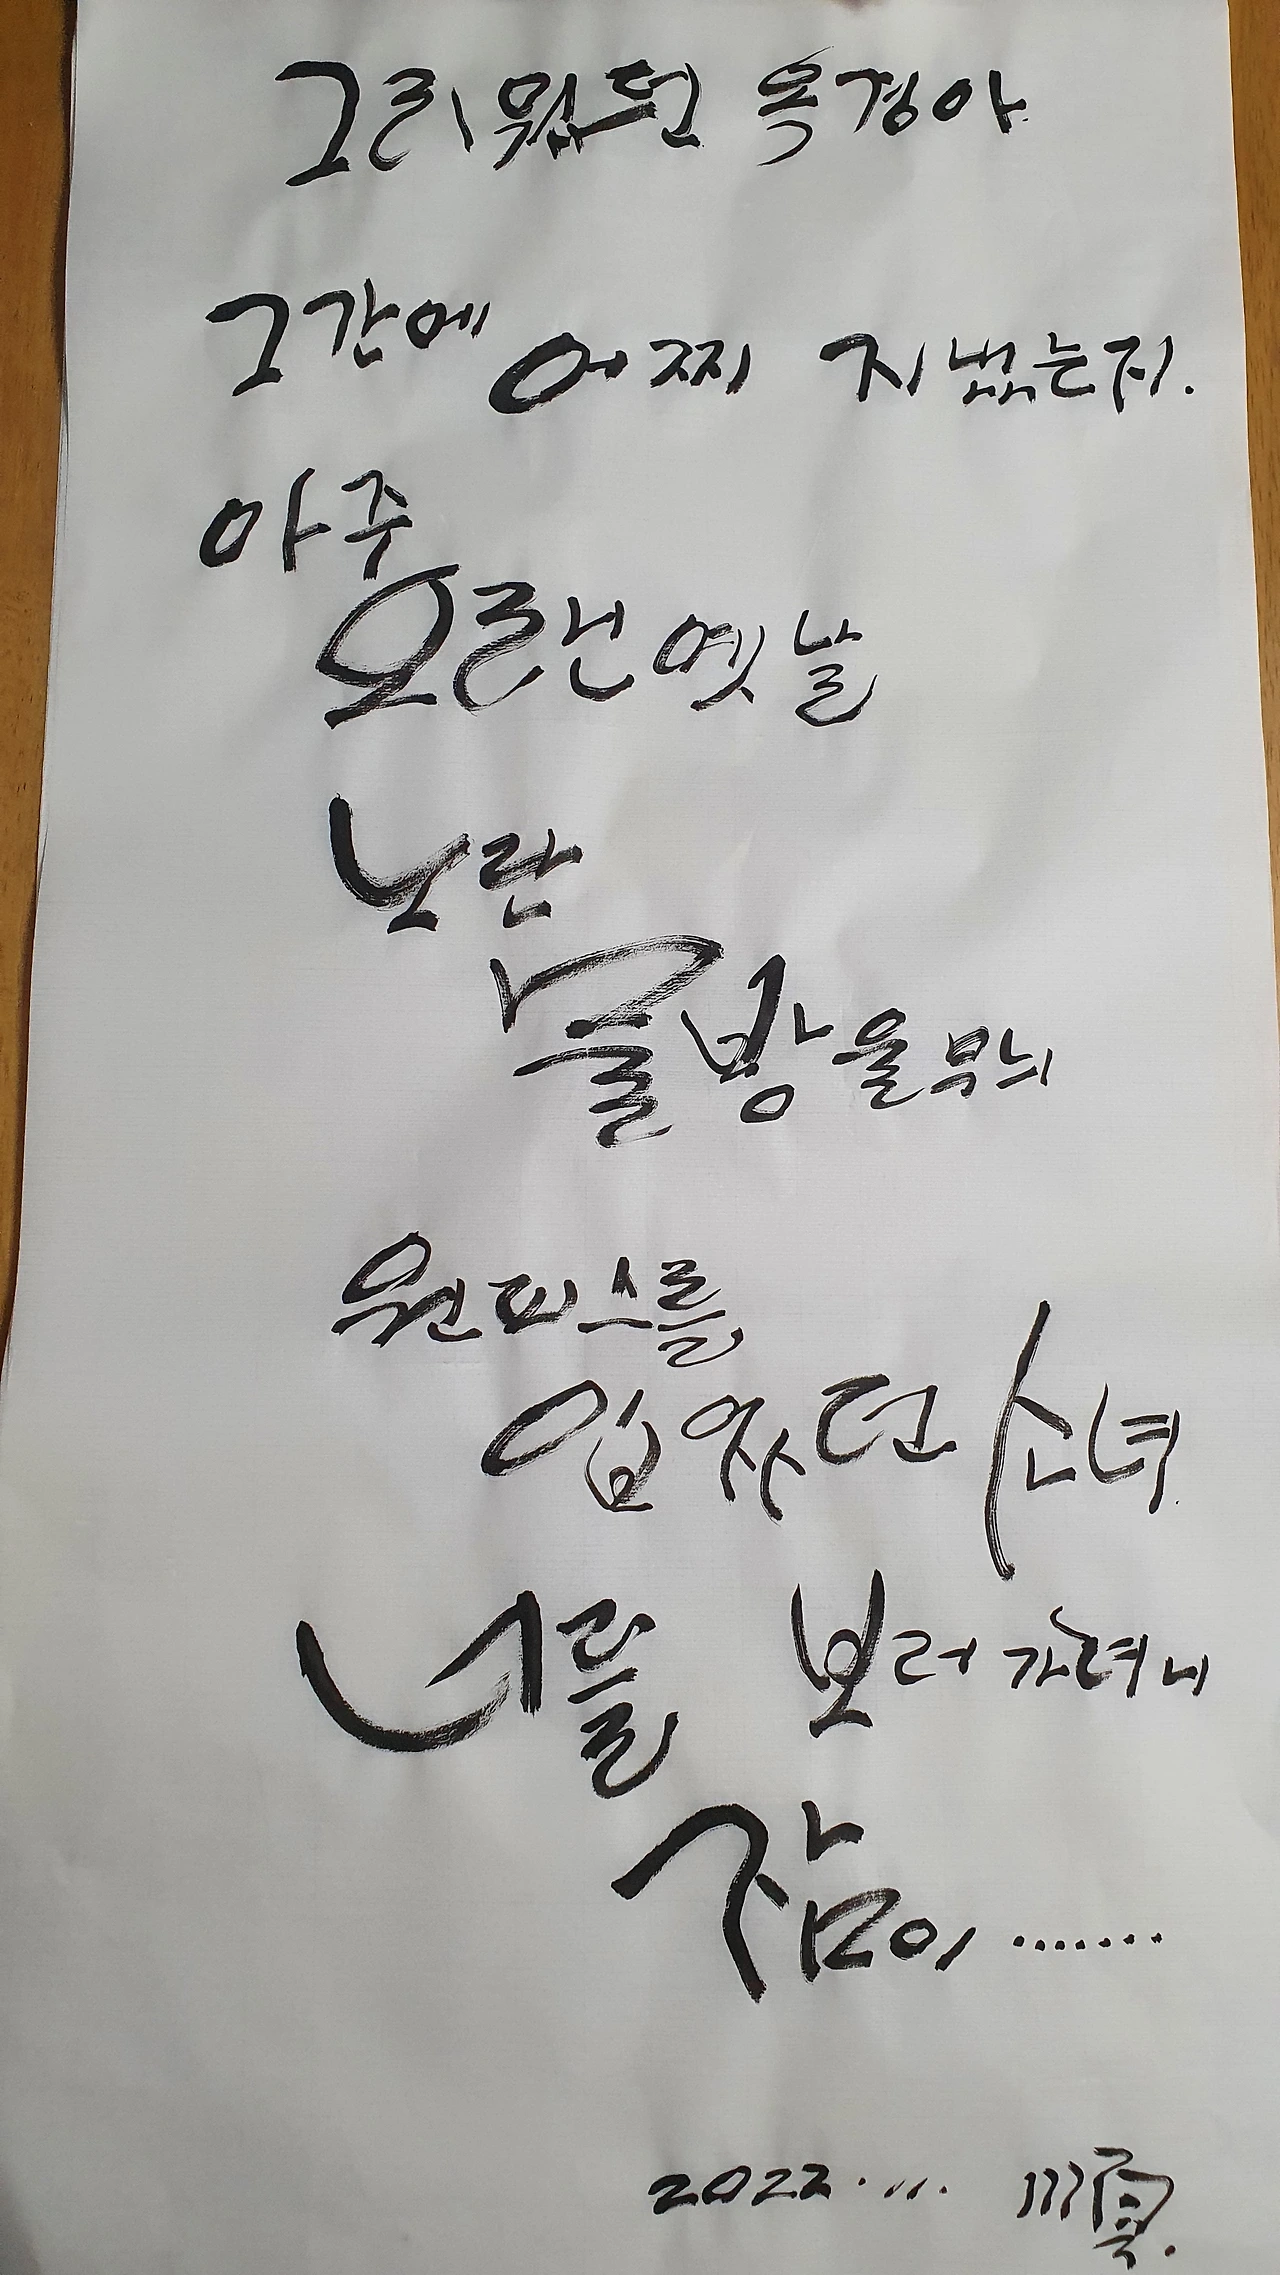 그리웠던 옥경아
그간에 어찌 지냈는지.
아주
오랜 옛날
노란
물방울무늬
원피스를
입었던 소녀
너를 보러가려니
잠이.......
2022. . . .